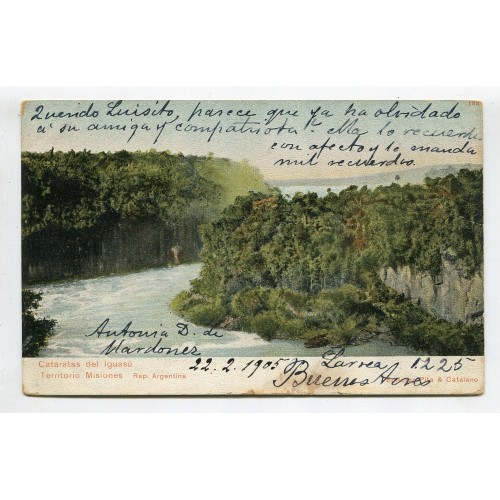 Querido Luisito, parece que ya ha olvidado
á su amiga y compatriota. Ella lo recuerda
con afecto y le manda
mil recuerdos.
Antonia D. de
Mardones
Cataratas del Iguasú
Territorio Misiones Rep. Argentina
22.2.1905
Larrea 1225
Buenos Aires
& Catalano